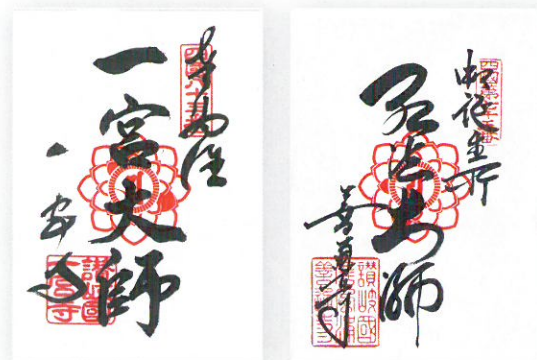 奉納経
一宮大師
一宮寺
讃岐國
一宮寺
御誕生所
弘法大師
善通寺
讃岐國